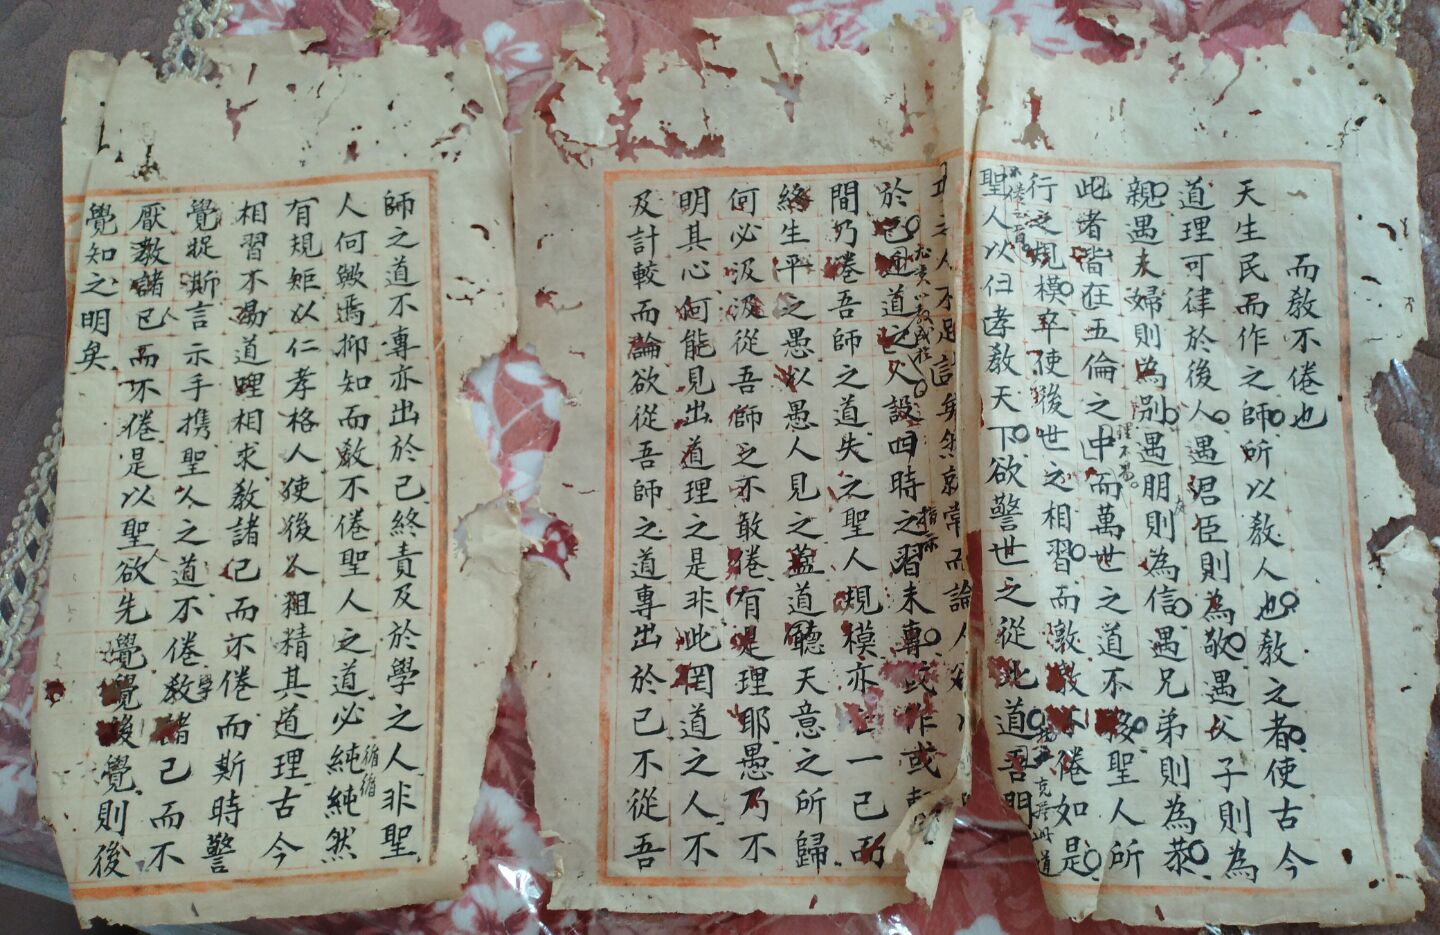 而教不倦也
天生民而作之師所以教人也教之者都使古今
道理可律於後人遇君臣則為敬遇父子則為
親遇夫婦則為別遇朋友則為信遇兄弟則為恭
此者皆在五倫之中而萬世之道不移聖人所
行之規模卒使後世之相習而教不倦如是
聖人以曰孝教天下欲警世之從此道吾門
之人不足論矣然就常而論人
於己道之人設四時之習未專或作或
間乃倦吾師之道失之聖人規模亦一己而
終生平之愚以愚人見之蓋道聽天意之所歸
何必汲汲從吾師之不敢倦有是理耶愚乃不
明其心何能見出道理之是非此罔道之人不
及計較而論欲從吾師之道專出於己不從吾
師之道不專亦出於己終責及於學之人非聖
人何歟焉抑知而教不倦聖人之道必循循純純然
有規矩以仁孝格人使後人粗精其道理古今
相習不渴道理相求教諸己而不倦而斯時警
覺捉斯言示手携聖人之道不倦教學諸己而不
厭教諸人己而不倦是以聖人欲先覺覺後覺則後
覺知之明矣